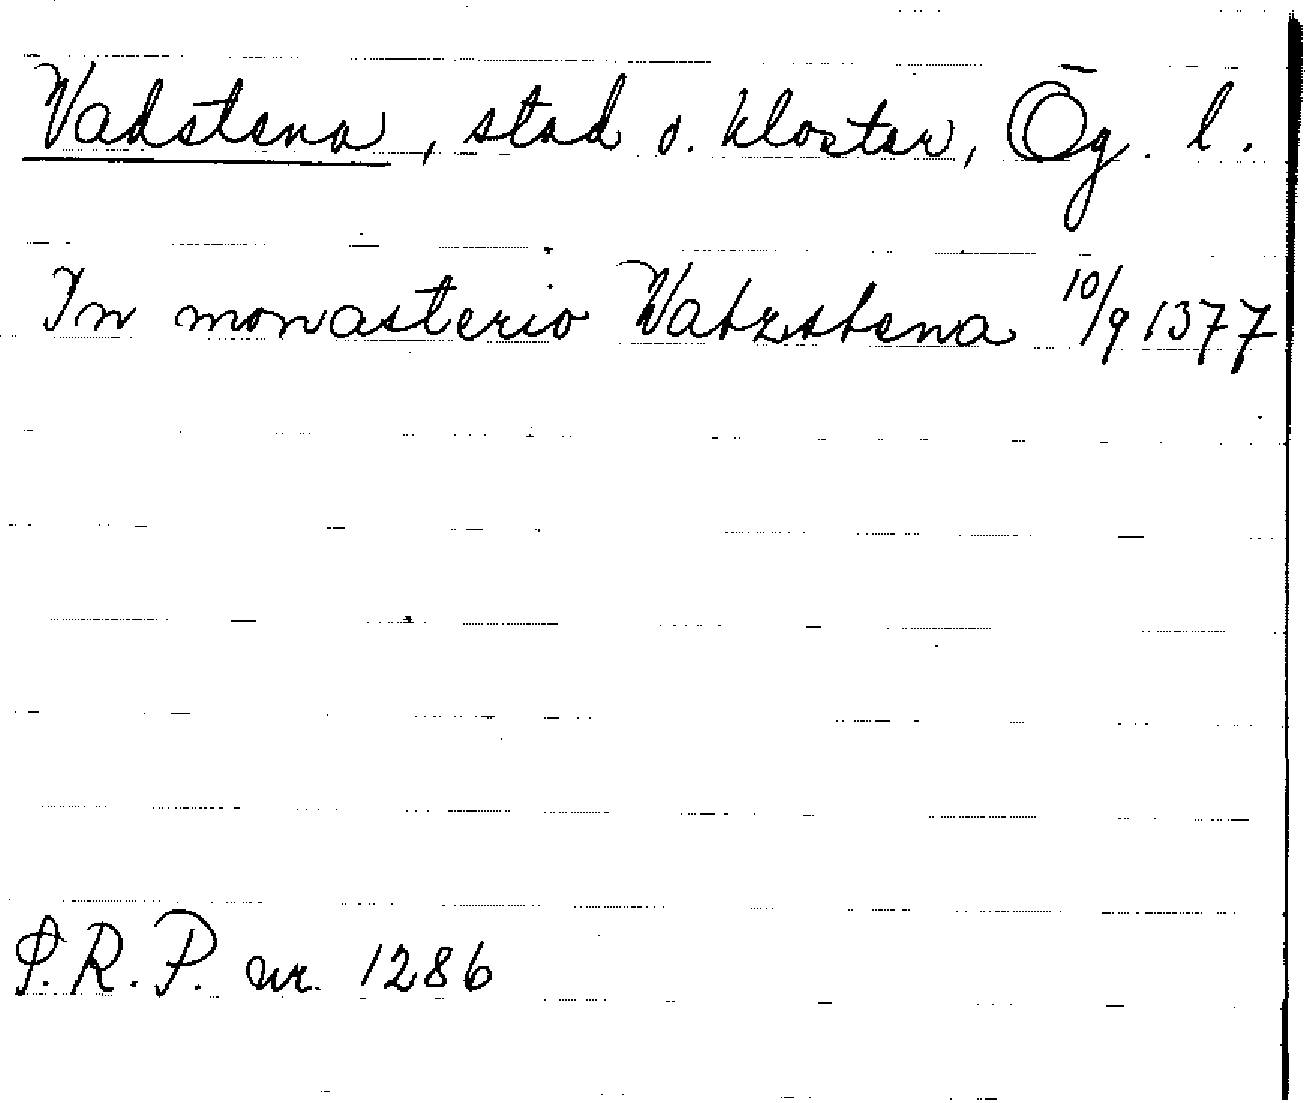 Vadstena, stad o. kloster, Ög. l.
In monasterio Watzstena 10/9 1377
S.R.P. nr. 1286